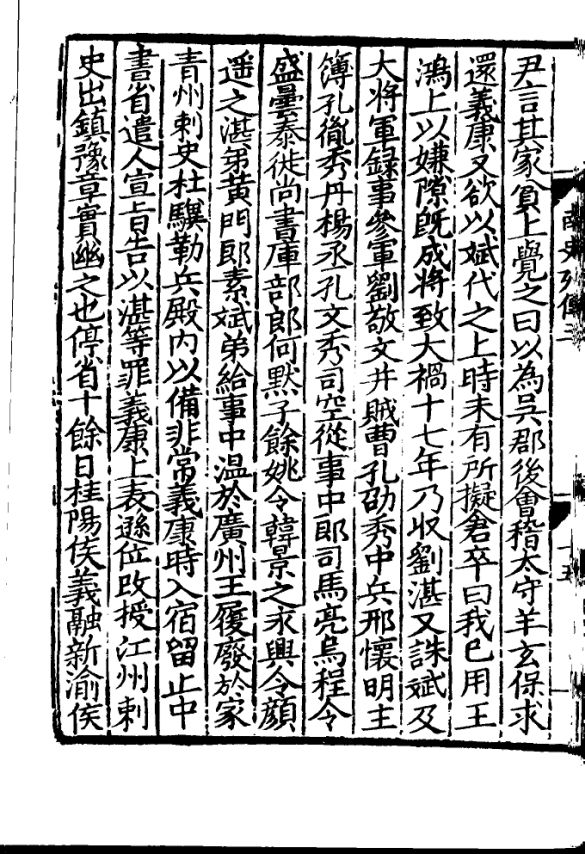 尹言其家貧上覺之曰以為吳郡後會稽太守羊玄保求
還義康又欲以斌代之上時未有所擬倉卒曰我已用王
鴻上以嫌隙既成將致大禍十七年乃收劉湛又誅斌及
大將軍録事參軍劉敬文并賊曹孔邵秀中兵邢懷明主
簿孔胤秀丹楊丞孔文秀司空從事中郎司馬亮烏程令
盛曇泰徙尚書庫部郎何黙子餘姚令韓景之永興令顏
遥之湛弟黄門郎素斌弟給事中温於廣州王履廢於家
青州刺史杜驥勒兵殿内以備非常義康時入宿留止中
書省遣人宣旨告以湛等罪義康上表遜位改授江州刺
史出鎮豫章實幽之也停省十餘日桂陽侯義融新渝侯